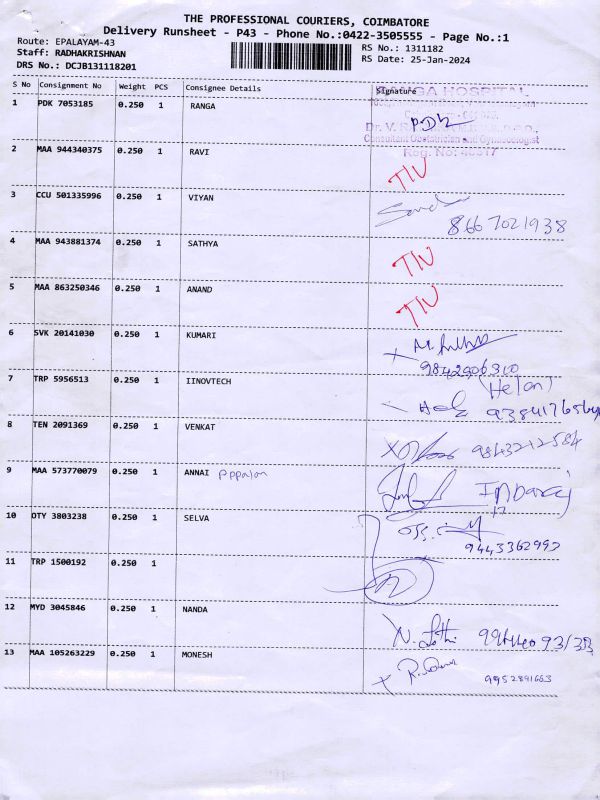 THE PROFESSIONAL COURIERS, COIMBATORE
Delivery Runsheet - P43 - Phone No.:0422-3505555 - Page No.:1
Route: EPALAYAM-43
Staff: RADHAKRISHNAN
DRS No.: DCJB131118201
RS No.: 1311182
RS Date: 25-Jan-2024
S No Consignment No Weight PCS Consignee Details Signature
1 PDK 7053185 0.250 1 RANGA
HOSPITAL
Dr. V.
Consultant Obstetrician and Gynaecologist
Reg. No:
2 MAA 944340375 0.250 1 RAVI
3 CCU 501335996 0.250 1 VIYAN
8667021938
4 MAA 943881374 0.250 1 SATHYA
5 MAA 863250346 0.250 1 ANAND
6 SVK 20141030 0.250 1 KUMARI
9842906310
7 TRP 5956513 0.250 1 IINOVTECH
(Helan)
8 TEN 2091369 0.250 1 VENKAT
9843212584
9 MAA 573770079 0.250 1 ANNAI
10 OTY 3803238 0.250 1 SELVA
9443362992
11 TRP 1500192 0.250 1
12 MYD 3045846 0.250 1 NANDA
13 MAA 105263229 0.250 1 MONESH
9952891663